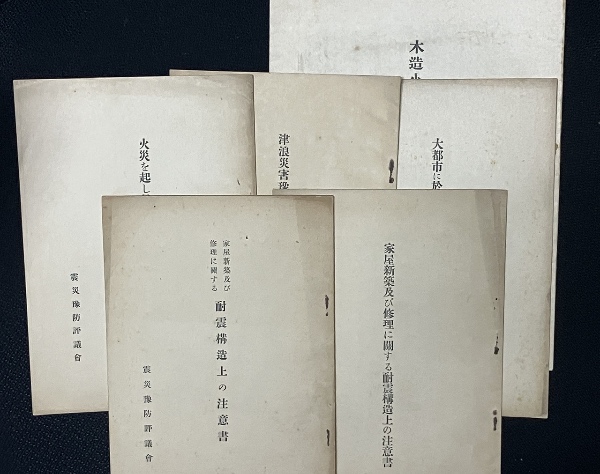 木造小
大都市に於
津浪災害
火災を起し
震災豫防評議會
家屋新築及び修理に關する耐震構造上の注意書
家屋新築及び
修理に關する
耐震構造上の注意書
震災豫防評議會